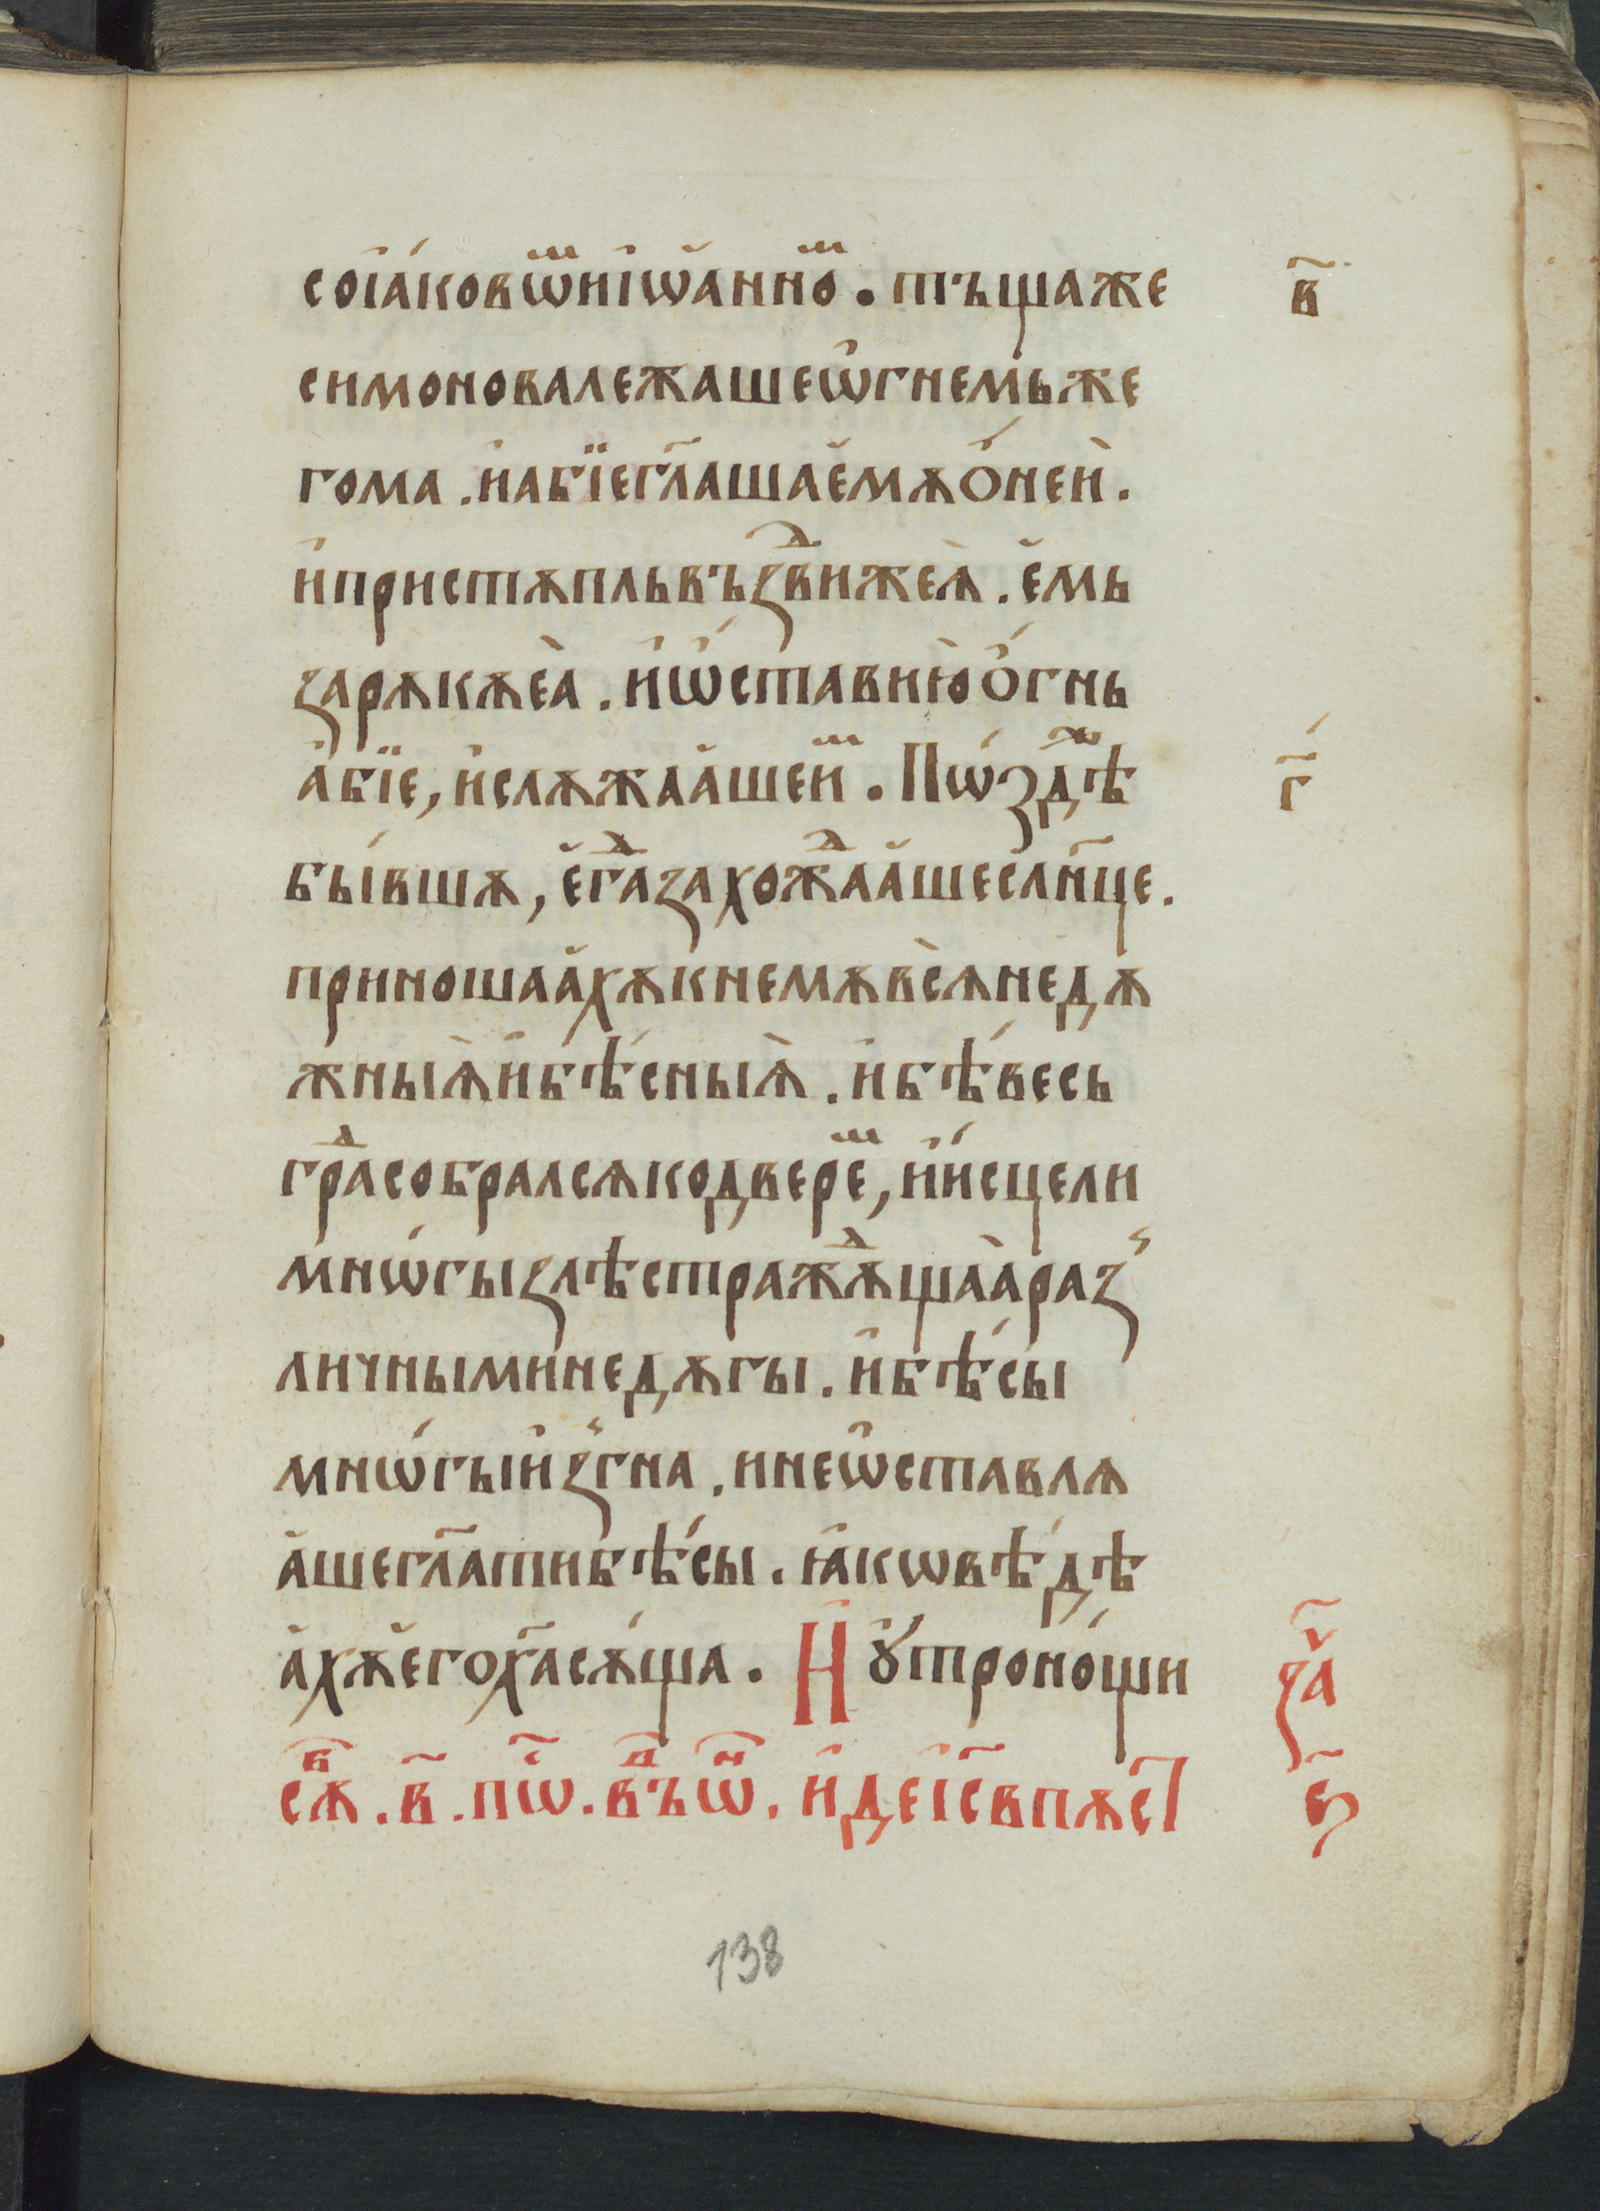 соіа́ковѡⷨ҇ниіѡа҆нноⷨ҇. тъщаже в҃
симоновалежашеѡ҆гнемьже
гома. и҆абїегл҃аша҆емѫо҆́неи҆̀.
и҆пристѫпльвъꙁⷣвижеѧ̀. е҆мь
ꙁарѫкѫеа̀. и҆ѡ҆́ставию̀о҆́гнь
а҆́бїе, и҆слѫжаа҆шеиⷨ҇. Пѡ́здⷤѣ г҃
бы́вшѫ, е҆гⷣаꙁахожⷣаа҆шесл҃нце.
приношаа҆хѫкнемѫвсѧ̀недѫ
жныѧ̀и҆бѣ́сныѧ̀. и҆бѣ́весь
граⷣсобралсѧкодвереⷨ҇, и҆и҆́сцели
мнѡ́гыꙁлѣстражⷣѫщаа̀раꙁ
личныминедѫгы. и҆бѣ́сы
мнѡ́гыи҆ꙁгна. инеѡ҆ставлѧ
а҆шегл҃атибѣ́сы. ꙗ҆́кѡвѣ́дѣ
а҆хѫ҆егох҃асѫ́ща. И ꙋ҆́троно́щи ꙁа҃
сѫⷠ. в҃. пѡⷭ҇. вⷣъѡⷩ҇. и҆деі҆с҃впѫст ꙅ҃
138